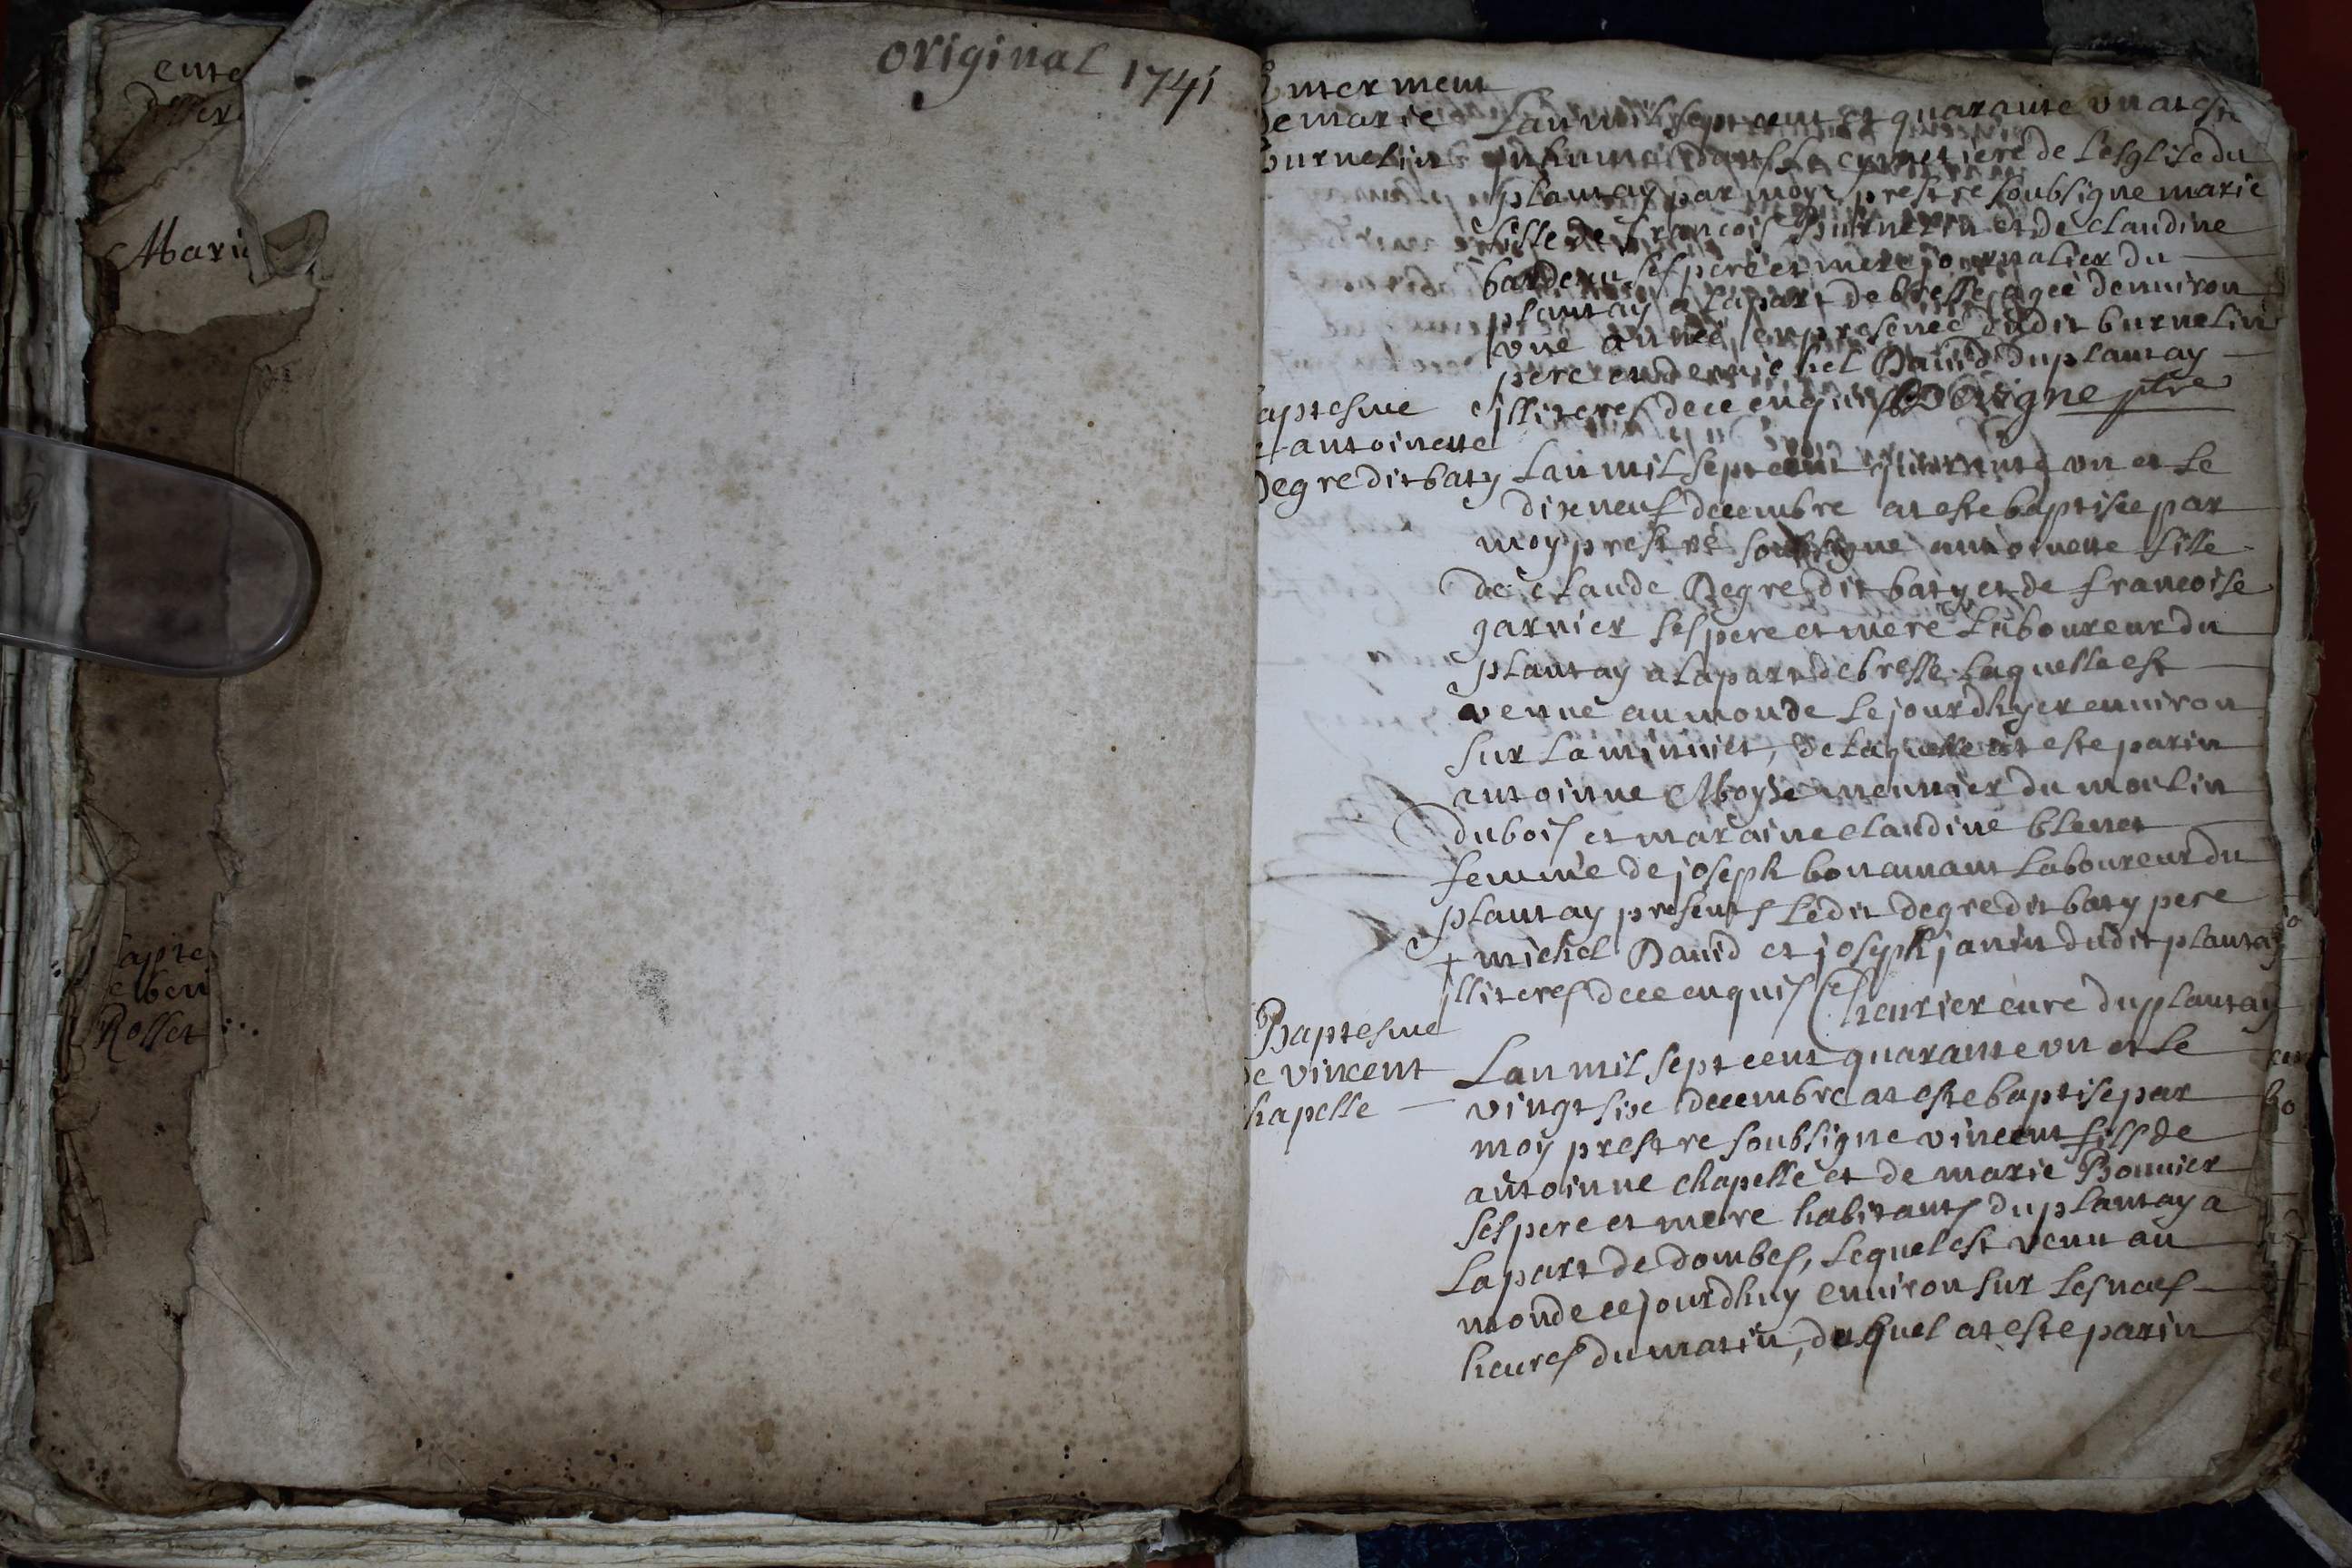 original 1741
ente
Mari
bapte
e ben
Rosset
Enterment
de marie
burnelin
Lan mil sept cent et quarante un at este
inhumé dans le cymetiere de lesglise du
plantay par moy prestre soubsigne marie
fille de francois Burnelin et de claudine
bardenu ses pere et mere journalier du
plantay a la part de bresse agee denuiron
une année en presence dudit burnelin
pere et de michel Dauid du plantay
illiteres de ce enquis ptre
baptesme
de antoinette
Degre dit baty
Lan mil sept cent quarante un et le
dixneuf decembre at este baptisee par
moy prestre soubsigne antoinette fille
de claude Degre dit baty et de francoise
garnier ses pere et mere laboureur du
plantay a la part de bresse laquelle est
venue au monde le jourdhyer enuiron
sur la minuict, de laquelle at este parin
antoinne Moyse meunnier du moulin
du bois et maraine claudine blenet
femme de joseph bonamant laboureur du
plantay presents ledit degre dit baty pere
+ michel Dauid et joseph janin dudit plantay
illiteres de ce enquis Cheurier cure du plantay
Baptesme
de vincent
chapelle
Lan mil sept cent quarante un et le
vingt six decembre at este baptise par
moy prestre soubsigne vincent fils de
antoinne chapelle et de marie Bonnier
ses pere et mere habitants du plantay a
la part de dombes, lequel est venu au
monde ce jourdhuy enuiron sur les neuf
heures du matin, duquel at este parin